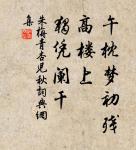 午枕梦初残
高楼上
独凭阑干
朱梅青杏见秋词典网
集